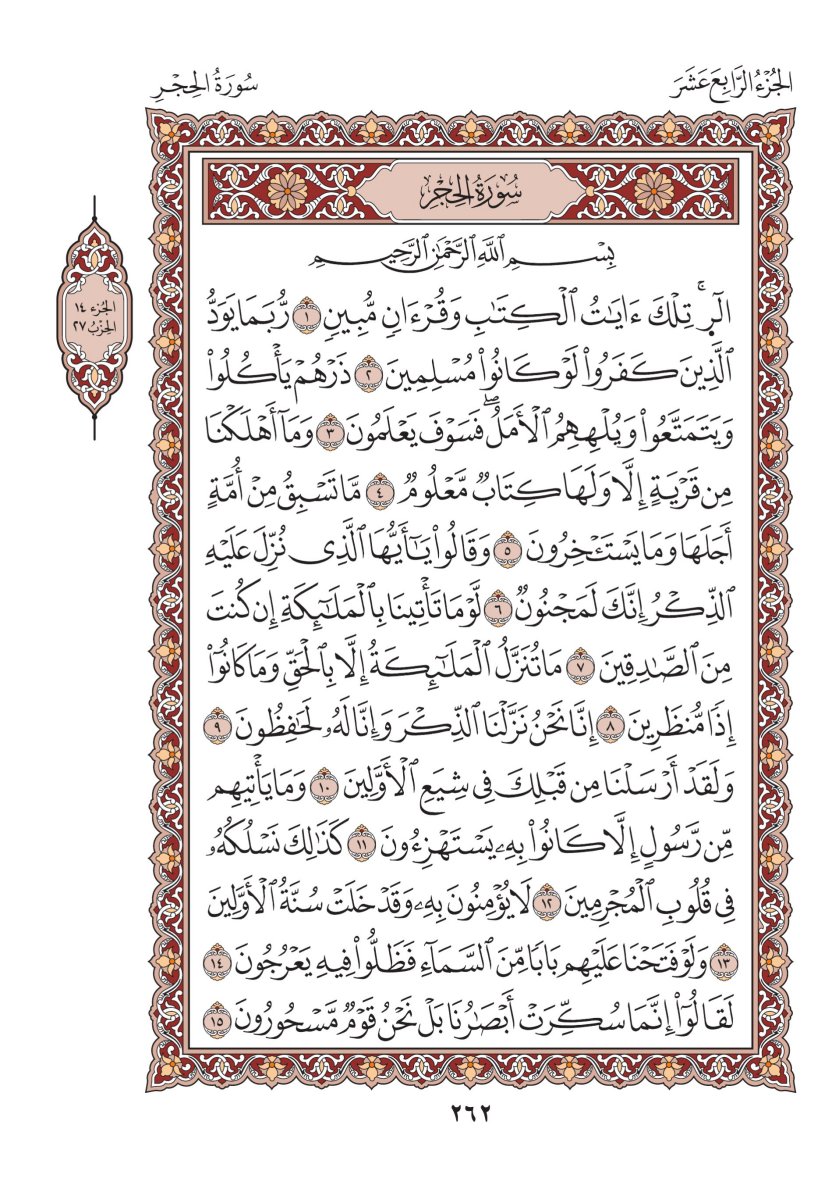 الجُزْءُ الرَّابِعَ عَشَرَ
سُورَةُ الحِجْرِ
سُورَةُ الحِجْرِ
الجزء ١٤
الحزب ٢٧
بِسْمِ ٱللَّهِ ٱلرَّحْمَٰنِ ٱلرَّحِيمِ
الٓرۚ تِلْكَ ءَايَٰتُ ٱلْكِتَٰبِ وَقُرْءَانٖ مُّبِينٖ ١ رُّبَمَا يَوَدُّ
ٱلَّذِينَ كَفَرُواْ لَوْ كَانُواْ مُسْلِمِينَ ٢ ذَرْهُمْ يَأْكُلُواْ
وَيَتَمَتَّعُواْ وَيُلْهِهِمُ ٱلْأَمَلُۖ فَسَوْفَ يَعْلَمُونَ ٣ وَمَآ أَهْلَكْنَا
مِن قَرْيَةٍ إِلَّا وَلَهَا كِتَابٞ مَّعْلُومٞ ٤ مَّا تَسْبِقُ مِنْ أُمَّةٍ
أَجَلَهَا وَمَا يَسْتَـْٔخِرُونَ ٥ وَقَالُواْ يَٰٓأَيُّهَا ٱلَّذِي نُزِّلَ عَلَيْهِ
ٱلذِّكْرُ إِنَّكَ لَمَجْنُونٞ ٦ لَّوْ مَا تَأْتِينَا بِٱلْمَلَٰٓئِكَةِ إِن كُنتَ
مِنَ ٱلصَّٰدِقِينَ ٧ مَا نُنَزِّلُ ٱلْمَلَٰٓئِكَةَ إِلَّا بِٱلْحَقِّ وَمَا كَانُوٓاْ
إِذٗا مُّنظَرِينَ ٨ إِنَّا نَحْنُ نَزَّلْنَا ٱلذِّكْرَ وَإِنَّا لَهُۥ لَحَٰفِظُونَ ٩
وَلَقَدْ أَرْسَلْنَا مِن قَبْلِكَ فِي شِيَعِ ٱلْأَوَّلِينَ ١٠ وَمَا يَأْتِيهِم
مِّن رَّسُولٍ إِلَّا كَانُواْ بِهِۦ يَسْتَهْزِءُونَ ١١ كَذَٰلِكَ نَسْلُكُهُۥ
فِي قُلُوبِ ٱلْمُجْرِمِينَ ١٢ لَا يُؤْمِنُونَ بِهِۦ وَقَدْ خَلَتْ سُنَّةُ ٱلْأَوَّلِينَ
١٣ وَلَوْ فَتَحْنَا عَلَيْهِم بَابٗا مِّنَ ٱلسَّمَآءِ فَظَلُّواْ فِيهِ يَعْرُجُونَ ١٤
لَقَالُوٓاْ إِنَّمَا سُكِّرَتْ أَبْصَٰرُنَا بَلْ نَحْنُ قَوْمٞ مَّسْحُورُونَ ١٥
٢٦٢